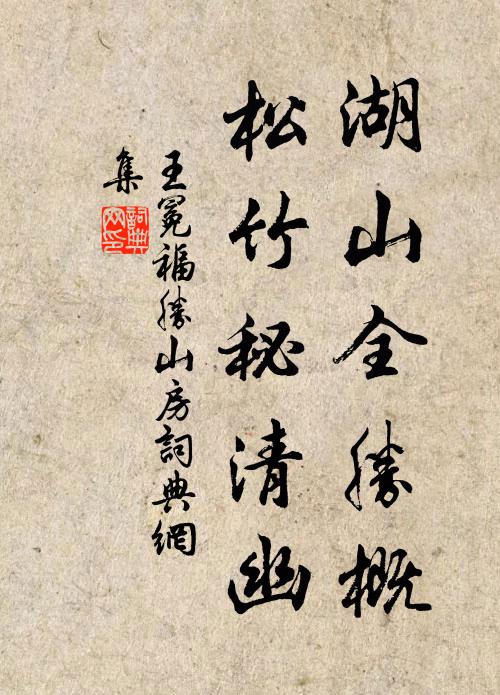 湖山全勝概
松竹秘清幽
王冕福勝山房詞典網
集
詞典網印